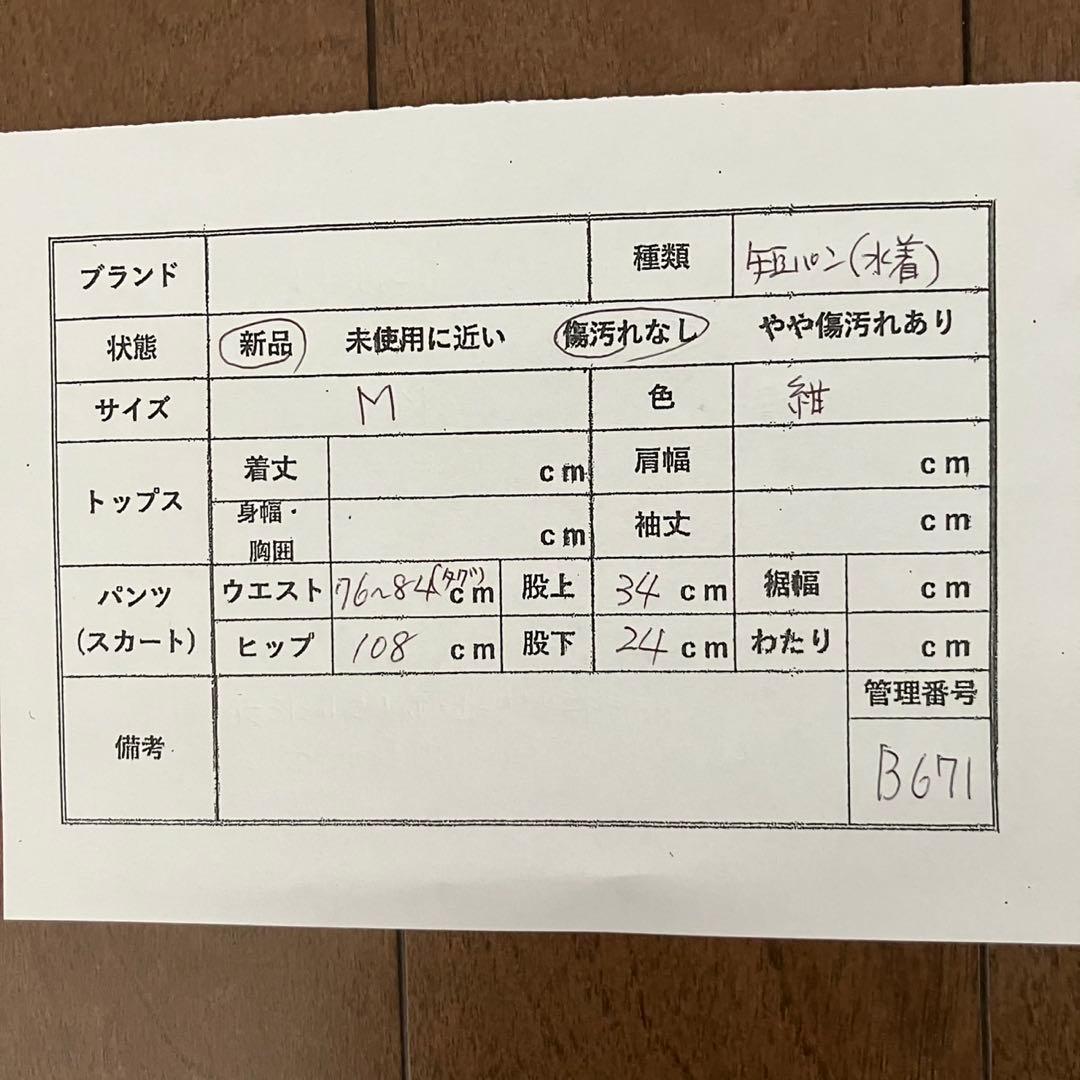 ブランド 種類 短パン(水着)
状態 新品 未使用に近い 傷汚れなし やや傷汚れあり
サイズ M 色 紺
トップス 着丈 cm 肩幅 cm
身幅・胸囲 cm 袖丈 cm
パンツ(スカート) ウエスト 76~84(タグ) cm 股上 34 cm 裾幅 cm
ヒップ 108 cm 股下 24 cm わたり cm
備考 管理番号
B671